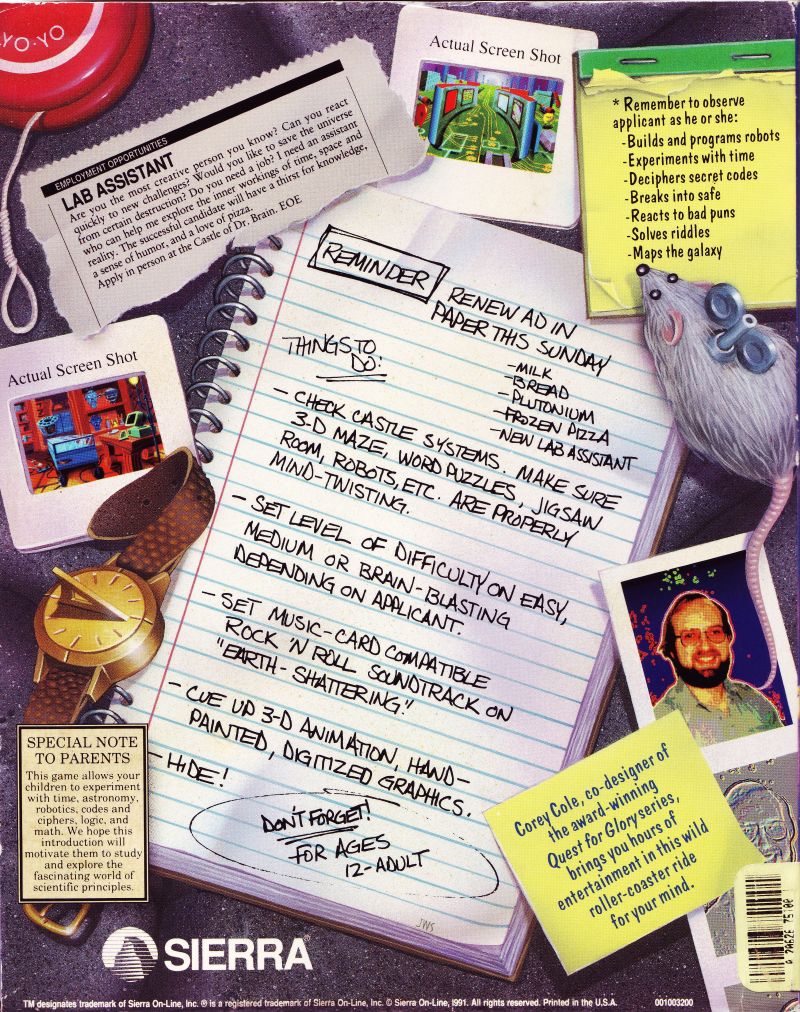 YO-YO
EMPLOYMENT OPPORTUNITIES
LAB ASSISTANT
Are you the most creative person you know? Can you react
quickly to new challenges? Would you like to save the universe
from certain destruction? Do you need a job? I need an assistant
who can help me explore the inner workings of time, space and
reality. The successful candidate will have a thirst for knowledge,
a sense of humor, and a love of pizza.
Apply in person at the Castle of Dr. Brain. EOE
Actual Screen Shot
* Remember to observe
applicant as he or she:
-Builds and programs robots
-Experiments with time
-Deciphers secret codes
-Breaks into safe
-Reacts to bad puns
-Solves riddles
-Maps the galaxy
REMINDER
RENEW AD IN
PAPER THIS SUNDAY
-MILK
-BREAD
-PLUTONIUM
-FROZEN PIZZA
-NEW LAB ASSISTANT
THINGS TO
DO:
- CHECK CASTLE SYSTEMS. MAKE SURE
3-D MAZE, WORD PUZZLES, JIGSAW
ROOM, ROBOTS, ETC. ARE PROPERLY
MIND-TWISTING.
- SET LEVEL OF DIFFICULTY ON EASY,
MEDIUM OR BRAIN-BLASTING
DEPENDING ON APPLICANT.
- SET MUSIC-CARD COMPATIBLE
ROCK 'N ROLL SOUNDTRACK ON
"EARTH-SHATTERING."
- CUE UP 3-D ANIMATION, HAND-
PAINTED, DIGITIZED GRAPHICS.
- HIDE!
DON'T FORGET!
FOR AGES
12-ADULT
JWS
Actual Screen Shot
SPECIAL NOTE
TO PARENTS
This game allows your
children to experiment
with time, astronomy,
robotics, codes and
ciphers, logic, and
math. We hope this
introduction will
motivate them to study
and explore the
fascinating world of
scientific principles.
Corey Cole, co-designer of
the award-winning
Quest for Glory series,
brings you hours of
entertainment in this wild
roller-coaster ride
for your mind.
SIERRA®
TM designates trademark of Sierra On-Line, Inc. ® is a registered trademark of Sierra On-Line, Inc. © Sierra On-Line, 1991. All rights reserved. Printed in the U.S.A.
001003200